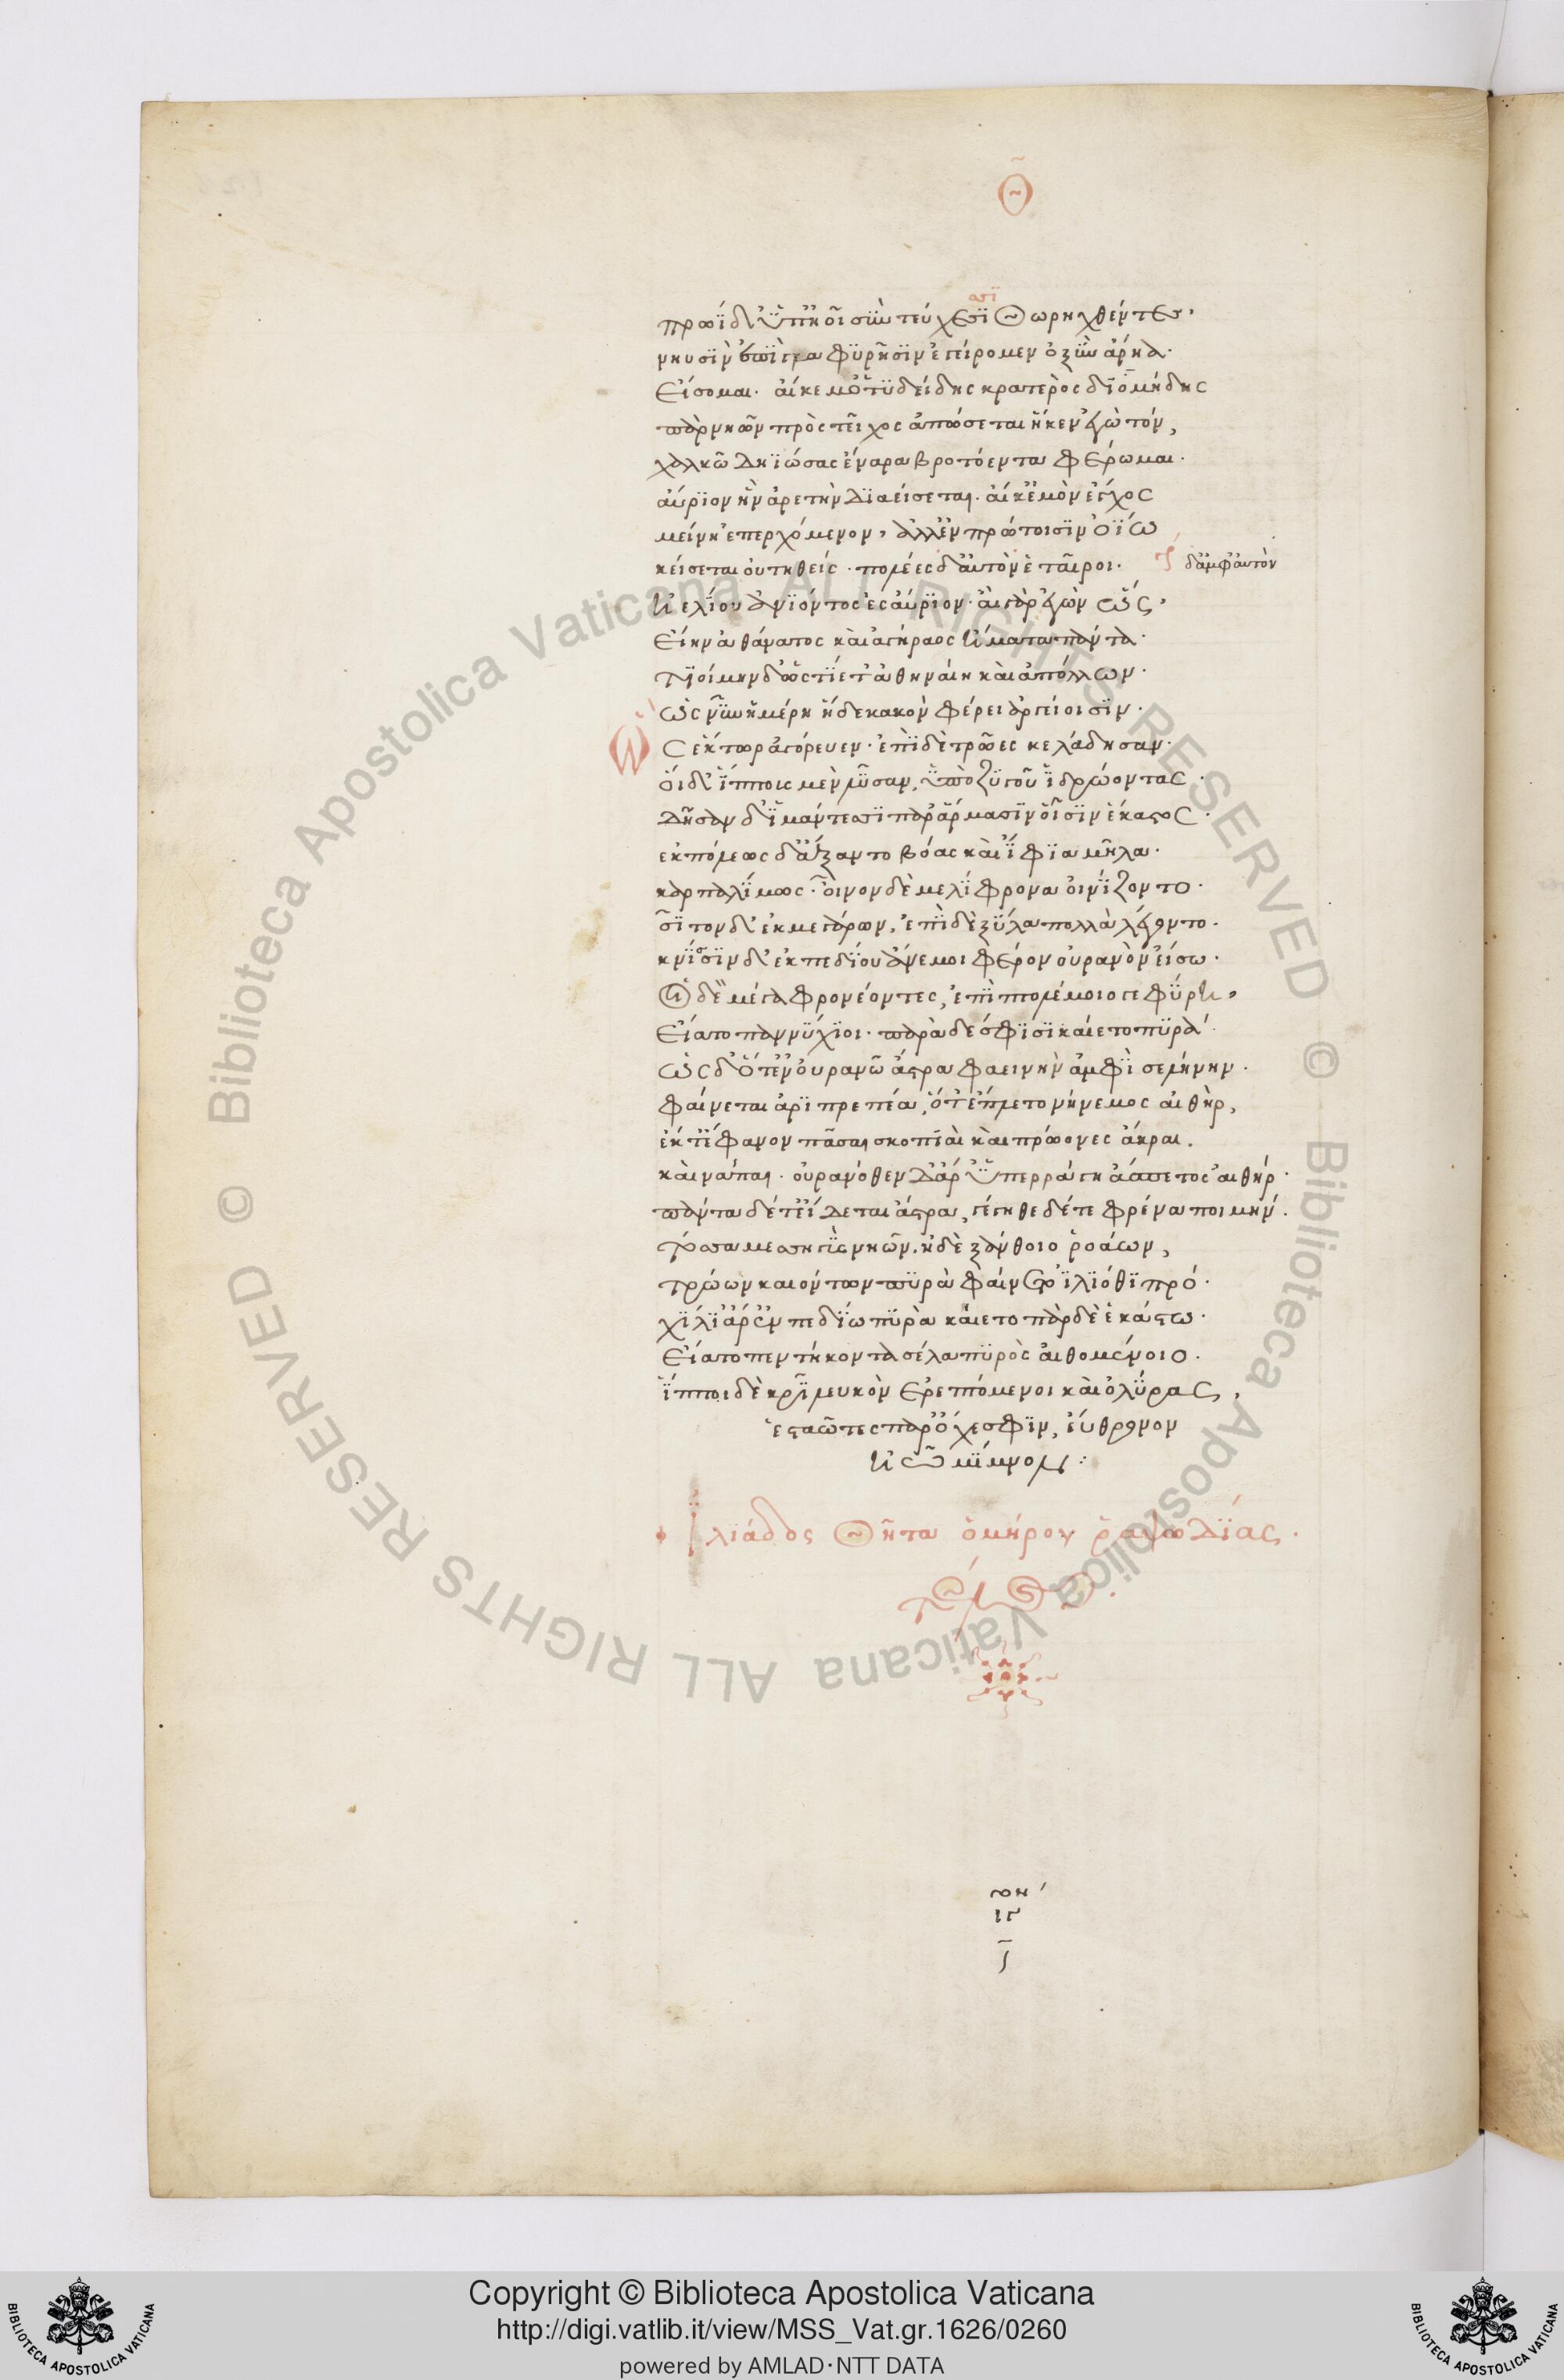 Θ
πρωΐ δ' ὑπ' ἠοῖ σὺν τεύχεσϊ θωρηχθέντες,
ασϊ
νηυσὶν ἐπὶ γλαφυρῇσϊν ἐγείρομεν ὀξὺν ἄρηα·
Εἴσομαι· αἴ κέ μ' ὁ τυδείδης κρατερὸς διομήδης
πὰρ νηῶν πρὸς τεῖχος ἀπώσεται ἤ κεν ἐγὼ τόν,
χαλκῶ δηϊώσας ἔναρα βροτόεντα φέρωμαι·
αὔριον ἣν ἀρετὴν διαείσεται· αἴ κ' ἐμὸν ἔγχος
μείνη ἐπερχόμενον, ἀλλ' ἐν πρώτοισϊν ὀΐω
κείσεται οὐτηθείς· πολέες δ' αὐτὸν ἑταῖροι·
δ' ἀμφ' αὐτὸν
ἠελίου ἀνϊόντος ἐς αὔριον· αἲ γὰρ ἐγὼν ὣς,
Εἴην ἀθάνατος καὶ ἀγήραος ἤματα πάντα·
τϊοίμην δ' ὡς τίετ' ἀθηναίη καὶ ἀπόλλων·
ὡς νῦν ἡμέρη ἥδε κακὸν φέρει ἀργείοισϊν·
Ὣς ἕκτωρ ἀγόρευεν· ἐπὶ δὲ τρῶες κελάδησαν·
οἱ δ' ἵππους μὲν λῦσαν, ὑπὸ ζυγοῦ ἱδρώοντας·
δῆσαν δ' ἱμάντεσσϊ παρ' ἅρμασϊν οἷσϊν ἕκαστος·
ἐκ πόλεως δ' ἄξαντο βόας καὶ ἴφϊα μῆλα·
καρπαλίμως· οἶνον δὲ μελίφρονα οἰνίζοντο·
σῖτον δ' ἐκ μεγάρων, ἐπὶ δὲ ξύλα πολλὰ λέγοντο·
κνίσϊην δ' ἐκ πεδίου ἄνεμοι φέρον οὐρανὸν εἴσω·
Οἱ δὲ μέγα φρονέοντες, ἐπὶ πτολέμοιο γεφύρη,
Εἵατο παννύχϊοι· πυρὰ δέ σφϊσϊ καίετο πυρά·
ὡς δ' ὅτ' ἐν οὐρανῶ ἄστρα φαεινὴν ἀμφὶ σελήνην·
φαίνεται ἀριπρεπέα, ὅτ' ἔπλετο νήνεμος αἰθὴρ,
ἔκ τ' ἔφανον πᾶσαι σκοπϊαὶ καὶ πρώονες ἄκροι.
καὶ νάπαι· οὐρανόθεν δ' ἄρ' ὑπερράγη ἄσπετος αἰθήρ·
πάντα δέ τ' εἴδεται ἄστρα, γέγηθε δέ τε φρένα ποιμήν·
τόσσα μεσηγῒς νηῶν· ἠδὲ ξάνθοιο ῥοάων,
τρώων καιόντων πυρὰ φαίνετο ἰλϊόθϊ πρό·
χίλϊ' ἄρ' ἐν πεδίω πυρὰ καίετο πὰρ δὲ ἑκάστω·
Εἵατο πεντήκοντα σέλα πυρὸς αἰθομένοιο·
ἵπποι δὲ κρῖ λευκὸν ἐρεπτόμενοι καὶ ὀλύρας,
ἑσταῶτες παρ' ὄχεσφϊν, ἐύθρονον
ἠῶ μίμνον:
Ἰλιάδος Θῆτα ὁμήρου ῥαψωδίας·
τέλος·